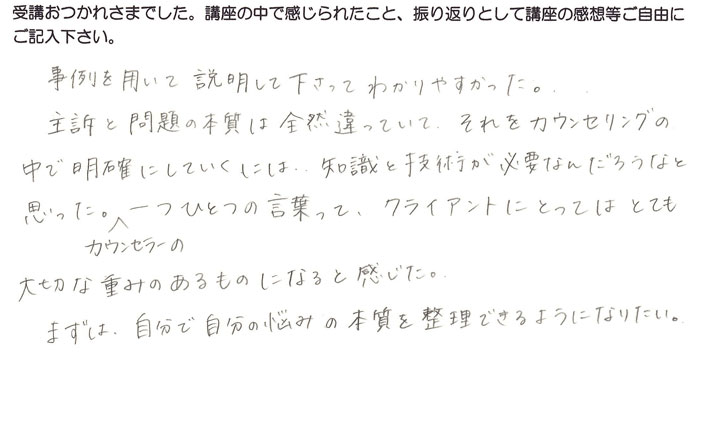 受講おつかれさまでした。講座の中で感じられたこと、振り返りとして講座の感想等ご自由に
ご記入下さい。
事例を用いて説明して下さってわかりやすかった。
主訴と問題の本質は全然違っていて、それをカウンセリングの
中で明確にしていくには、知識と技術が必要なんだろうなと
思った。一つひとつの言葉って、クライアントにとってはとても
カウンセラーの
大切な重みのあるものになると感じた。
まずは、自分で自分の悩みの本質を整理できるようになりたい。